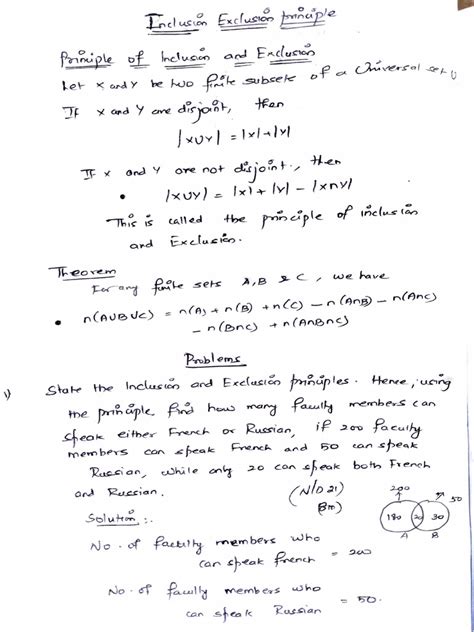 Inclusion Exclusion principle
Principle of Inclusion and Exclusion
Let X and Y be two finite subsets of a Universal set U
If X and Y are disjoint, then
|X∪Y| = |X|+|Y|
If X and Y are not disjoint, then
• |X∪Y| = |X|+|Y| - |X∩Y|
This is called the principle of inclusion
and Exclusion.
Theorem
For any finite sets A,B & C, we have
• n(A∪B∪C) = n(A) + n(B) + n(C) - n(A∩B) - n(A∩C)
- n(B∩C) + n(A∩B∩C)
Problems
1) State the Inclusion and Exclusion principles. Hence, using
the principle find how many faculty members can
speak either French or Russian, if 200 faculty
members can speak French and 50 can speak
Russian, while only 20 can speak both French
and Russian.
(N/D 21)
8m)
200
50
180 20 30
A B
Solution:.
No. of faculty members who
can speak french = 200
No. of faculty members who
can speak Russian = 50.